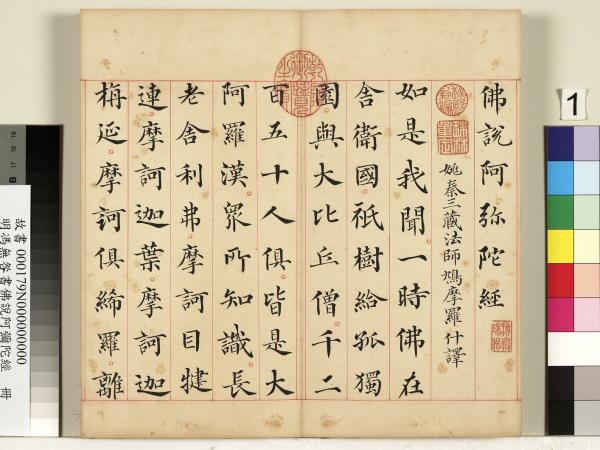 佛說阿弥陀經
姚秦三藏法師鳩摩羅什譯
如是我聞一時佛在
舍衛國祇樹給孤獨
園與大比丘僧千二
百五十人俱皆是大
阿羅漢眾所知識長
老舍利弗摩訶目犍
連摩訶迦葉摩訶迦
栴延摩訶俱絺羅離
故書 000179N000000000
明馮無咎書佛說阿彌陀經 冊
1